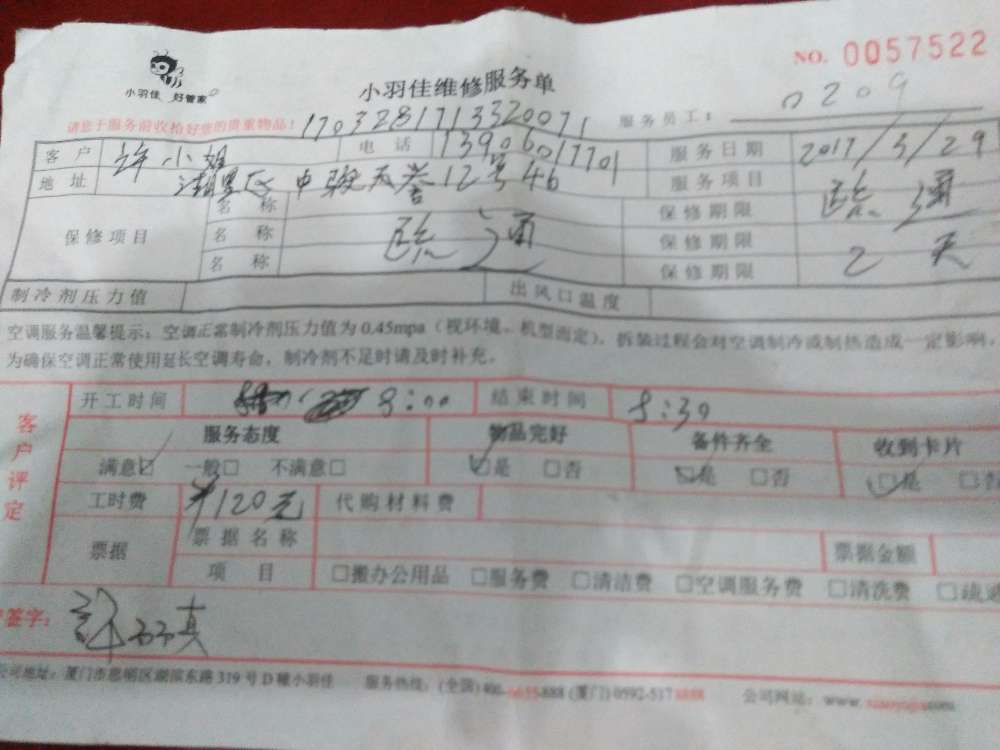 NO. 0057522
小羽佳 好管家
小羽佳维修服务单
请您于服务前收拾好您的贵重物品！ 1703281713320071 服务员工： 0209
客户 许小姐 电话 13906017701 服务日期 2017/3/29
地址 中骏天誉12号46 服务项目 疏通
保修项目 名称 保修期限
名称 疏通 保修期限 2天
名称 保修期限
制冷剂压力值 出风口温度
空调服务温馨提示：空调正常制冷剂压力值为0.45mpa（视环境、机型而定），拆装过程会对空调制冷或制热造成一定影响，
为确保空调正常使用延长空调寿命，制冷剂不足时请及时补充。
客户评定
开工时间 9:00 结束时间 9:30
服务态度 物品完好 备件齐全 收到卡片
满意☑ 一般□ 不满意□ ☑是 □否 ☑是 □否 ☑是 □否
工时费 ¥120元 代购材料费
票据 票据名称 票据金额
项目 □搬办公用品 □服务费 □清洁费 □空调服务费 □清洗费 □疏通
签字：
公司地址：厦门市思明区湖滨东路319号D幢小羽佳 服务热线：(全国)400-6655-888 (厦门) 0592-5178888 公司网站：www.xiaoyujia.com